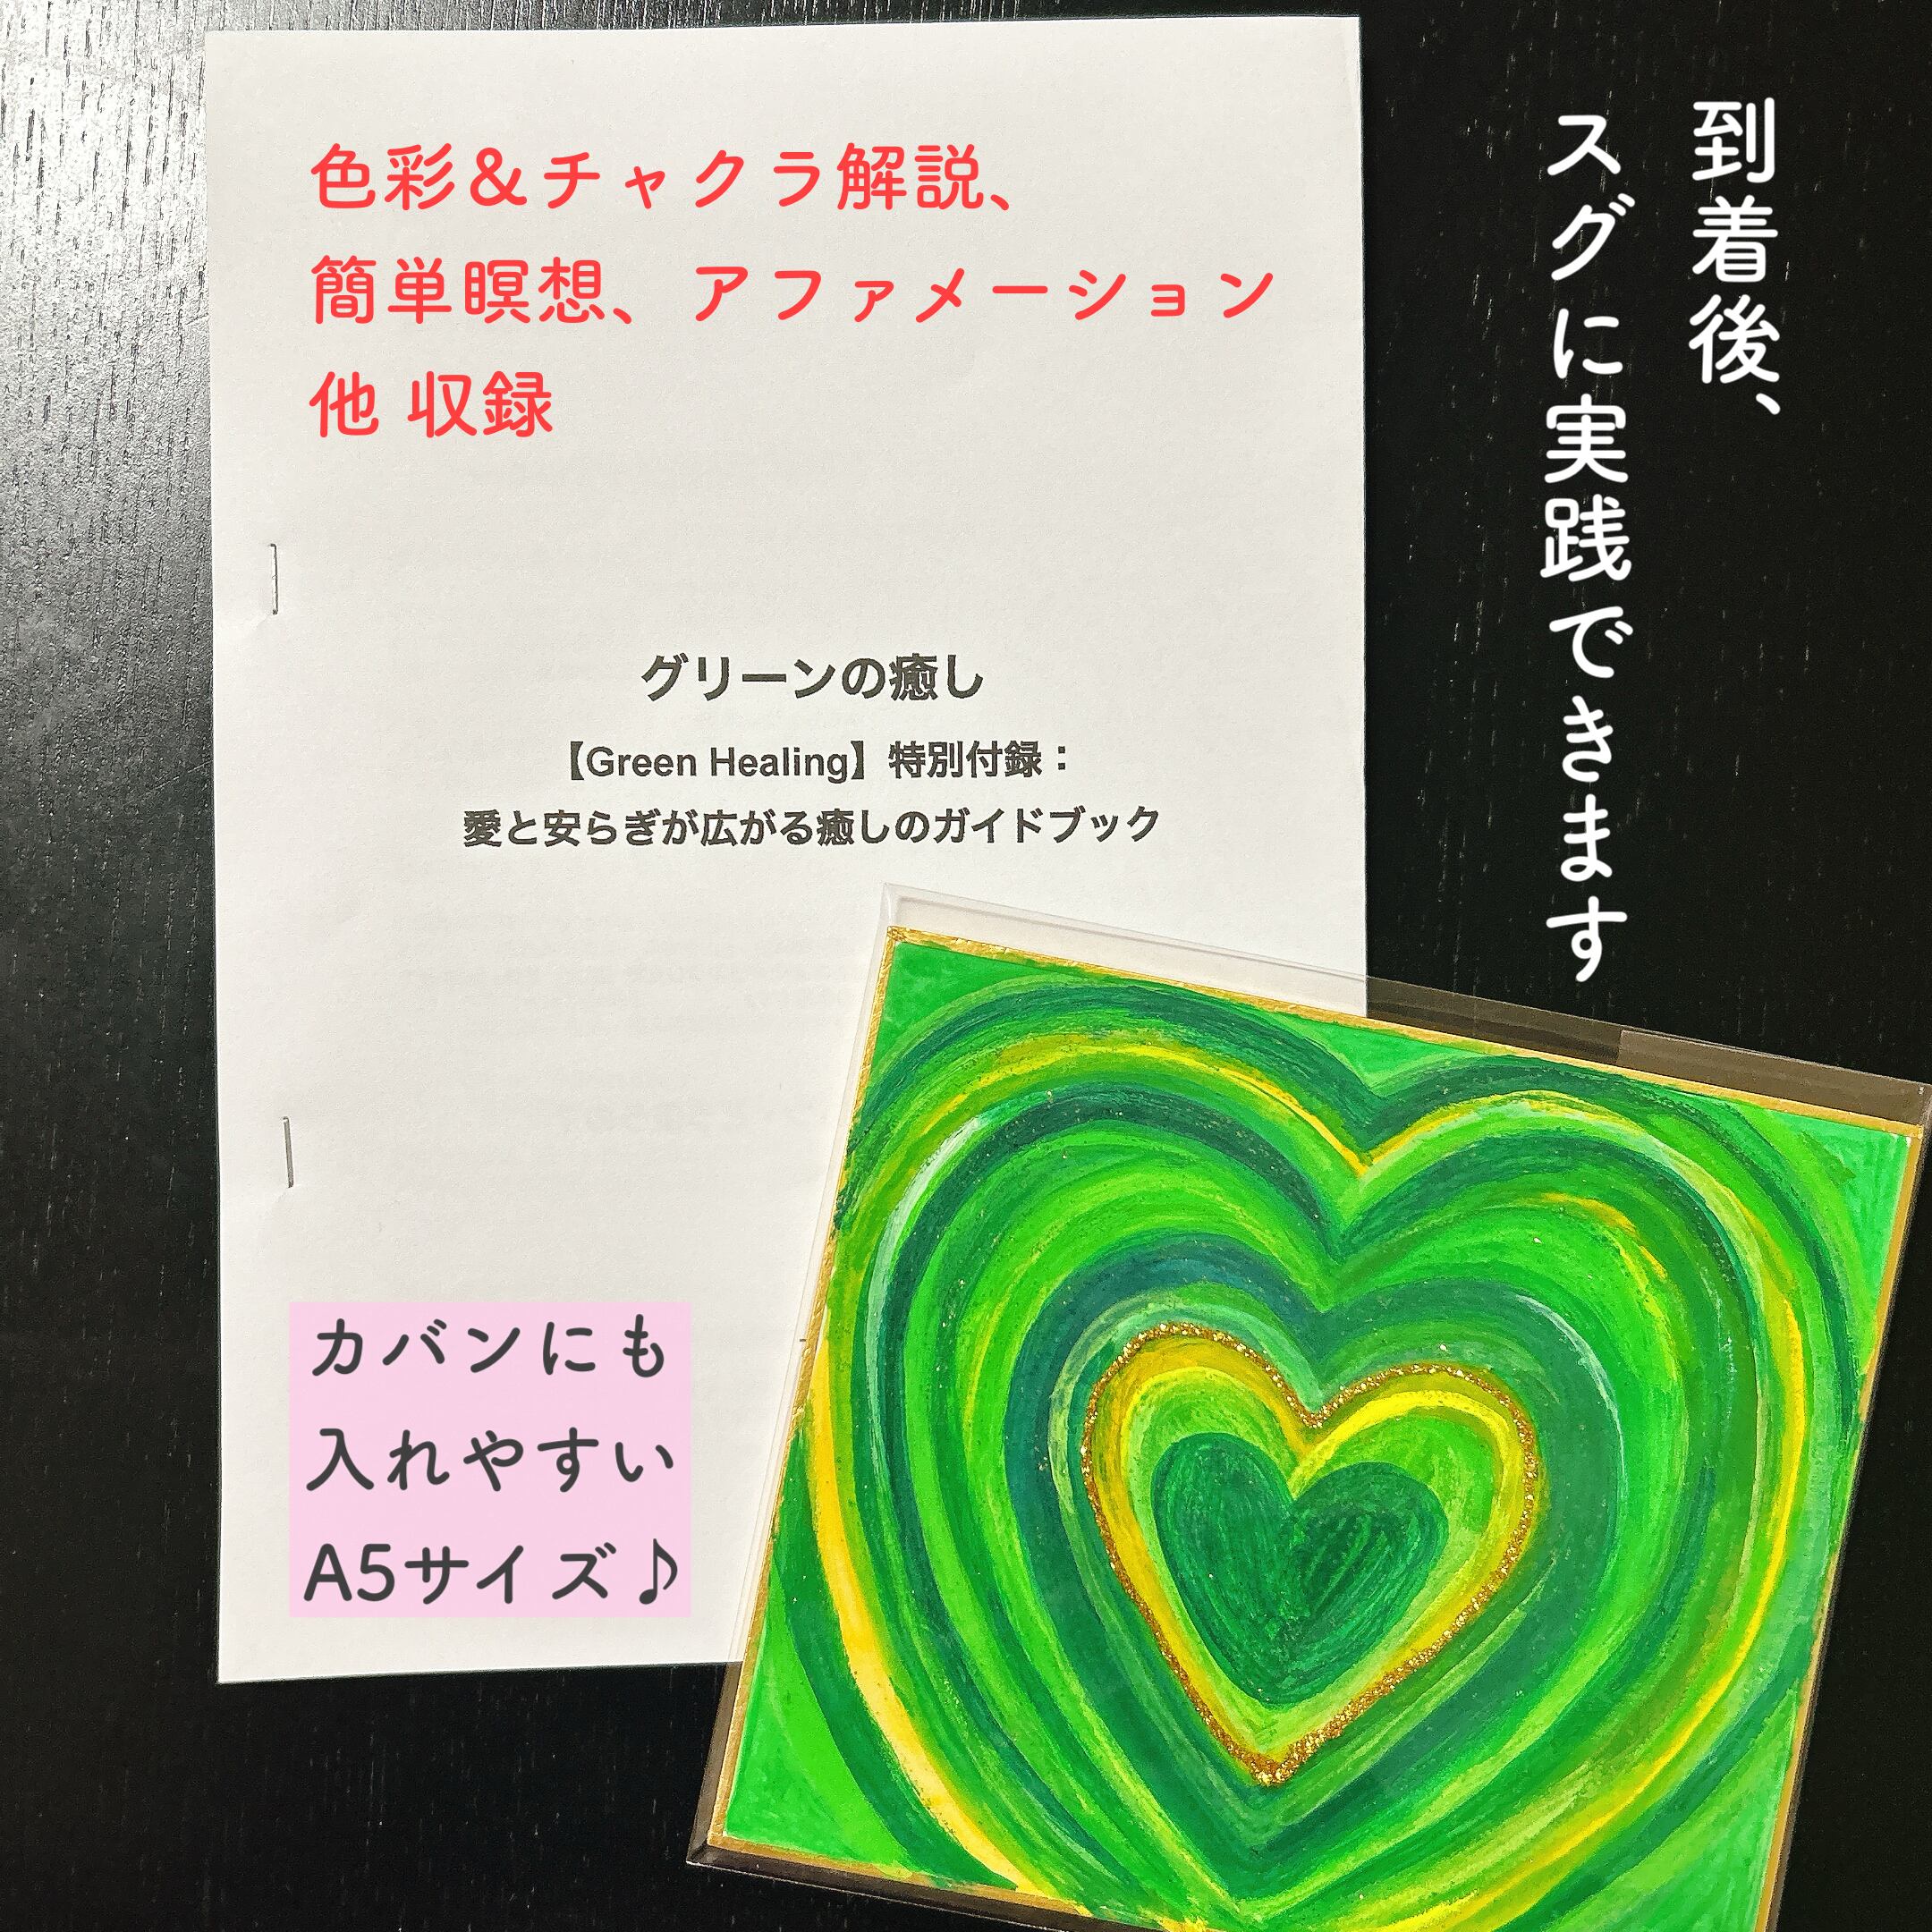 色彩＆チャクラ解説、
簡単瞑想、アファメーション
他 収録
到着後、
スグに実践できます
グリーンの癒し
【Green Healing】特別付録：
愛と安らぎが広がる癒しのガイドブック
カバンにも
入れやすい
A5サイズ♪